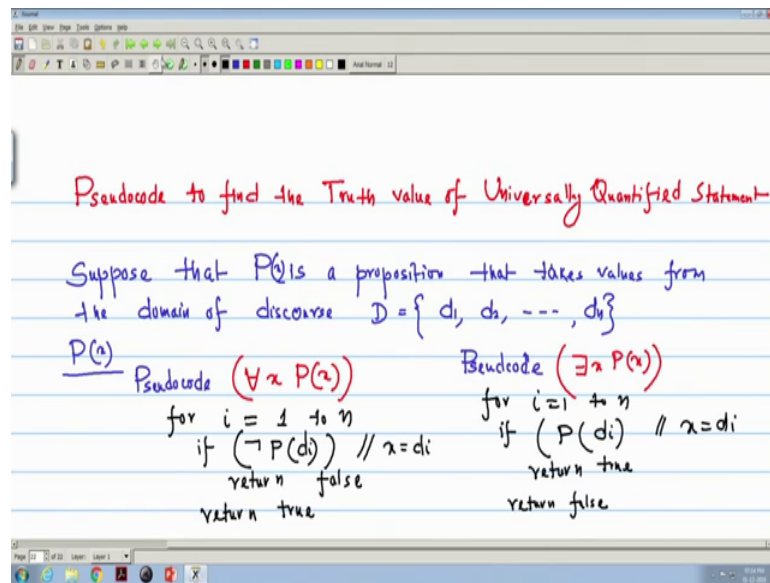 Journal
File Edit View Page Tools Options Help
Arial Normal 12
Pseudocode to find the Truth value of Universally Quantified Statement
Suppose that P(x) is a proposition that takes values from
the domain of discourse D = { d1, d2, ---, dn}
P(x)
Pseudocode (∀x P(x))
for i = 1 to n
if (¬P(di)) // x=di
return false
return true
Pseudcode (∃x P(x))
for i=1 to n
if (P(di) // x=di
return true
return false
Page 22 of 22 Layer: Layer 1